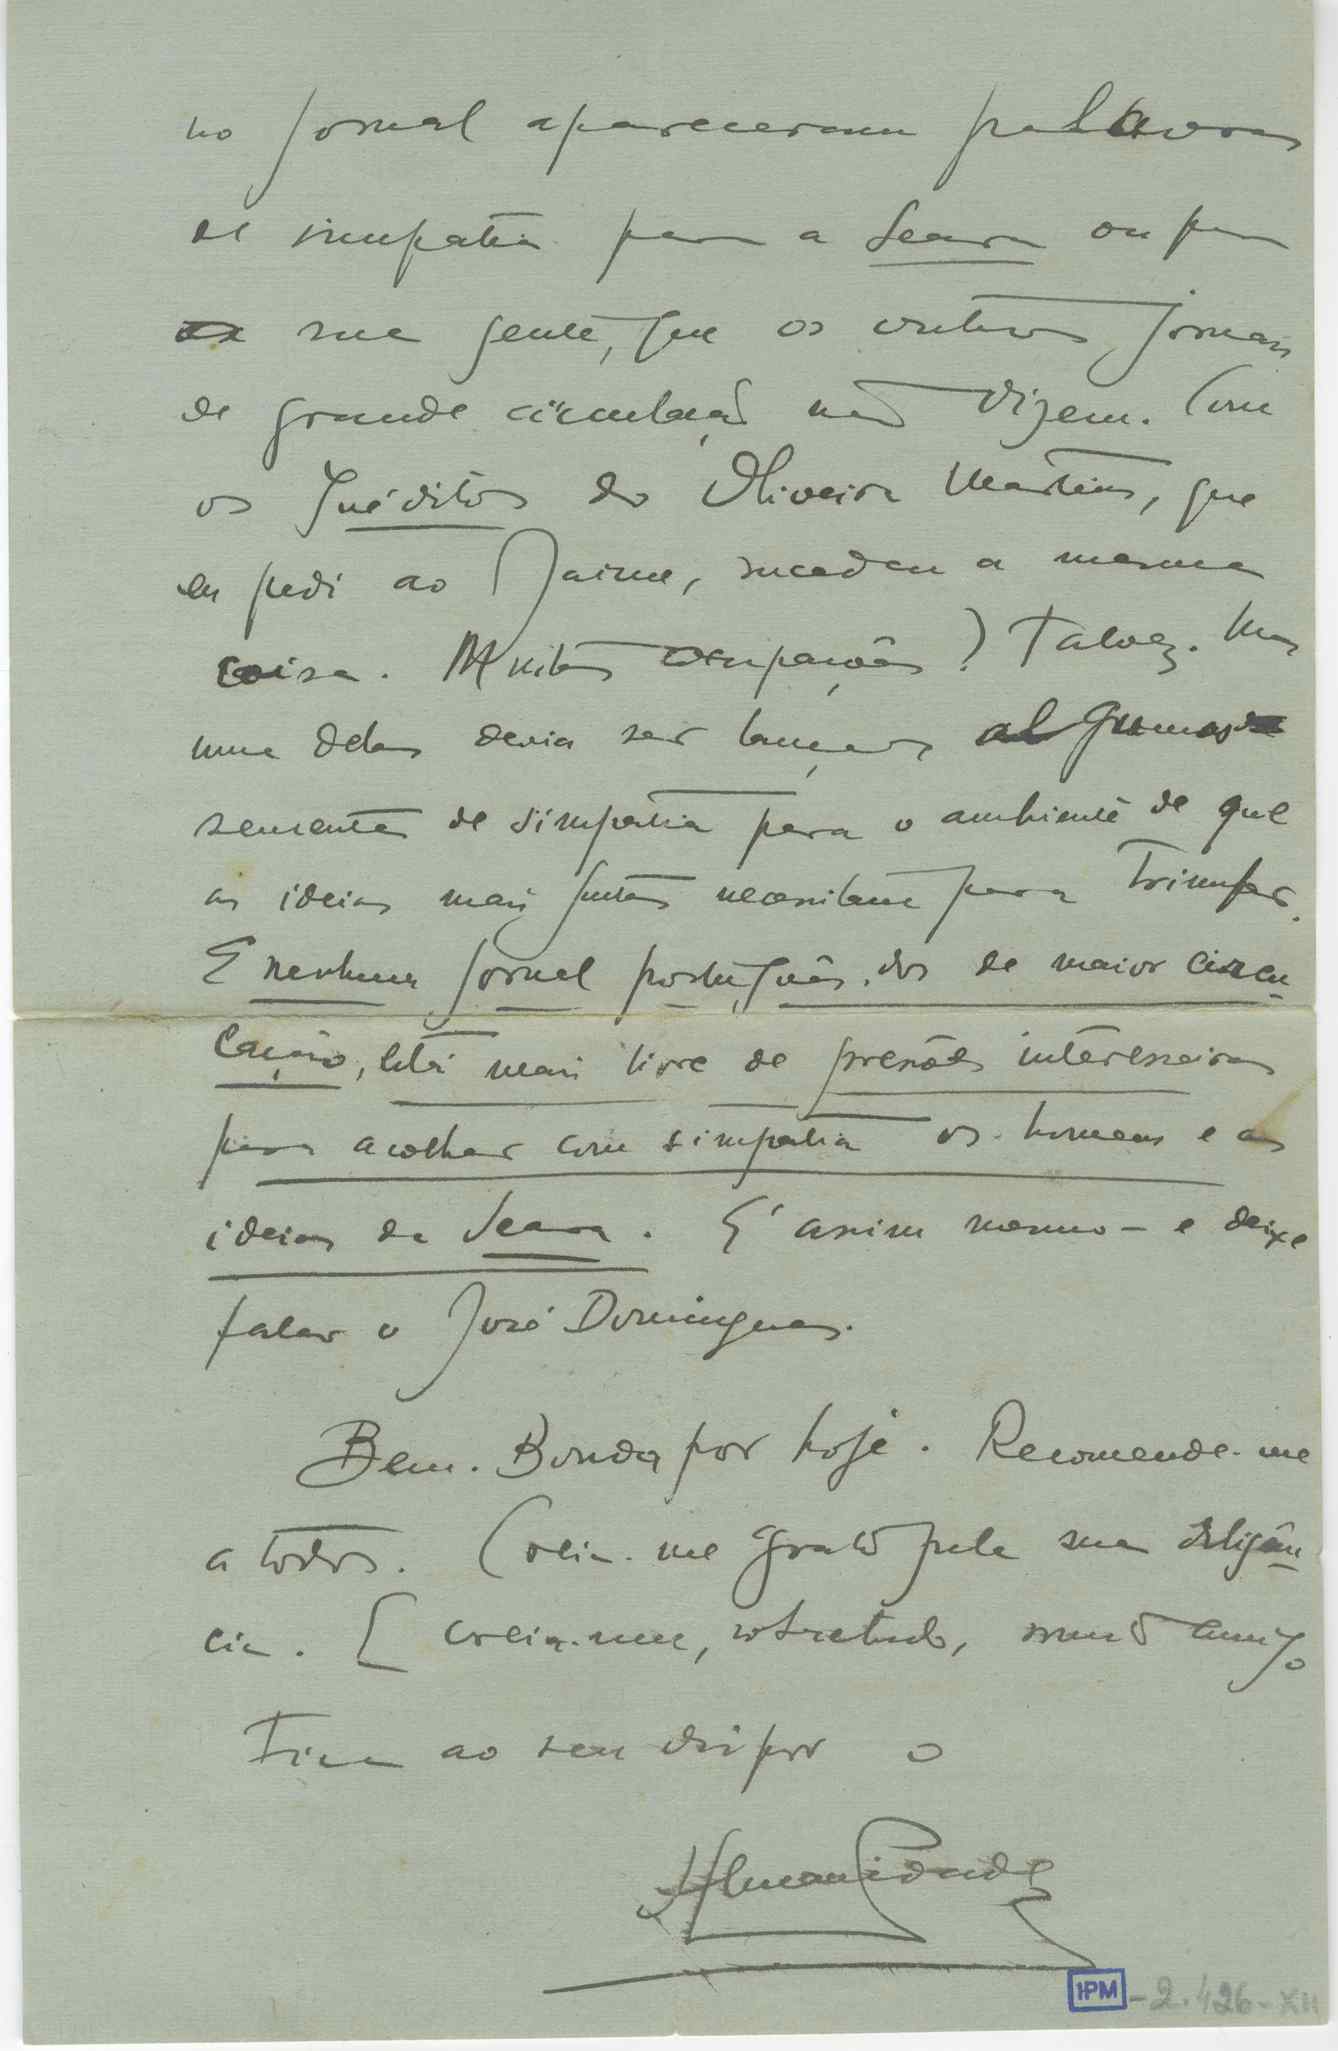 no jornal apareceram palavras
de simpatia para a Seara ou para
sua gente, que os outros jornais
de grande circulação não dizem. Com
os Inéditos do Oliveira Martins, que
eu pedi ao Jaime, sucedeu a mesma
coisa. Muitas ocupações? Talvez. Mas
uma delas devia ser lançar algumas
sementes de simpatia para o ambiente de que
as ideias mais justas necessitam para triunfar.
E nenhum jornal português, dos de maior circu
lação, está mais livre de pressões interesseiras
para acolher com simpatia os homens e as
ideias da Seara. É assim mesmo – e deixe
falar o José Domingues.
Bem. Bonda por hoje. Recomende-me
a todos. Creia-me grato pela sua diligên
cia. E creia-me, sobretudo, muito amigo
Fica ao seu dispor o
Hernani Cidade
IPM - 2.426-XII